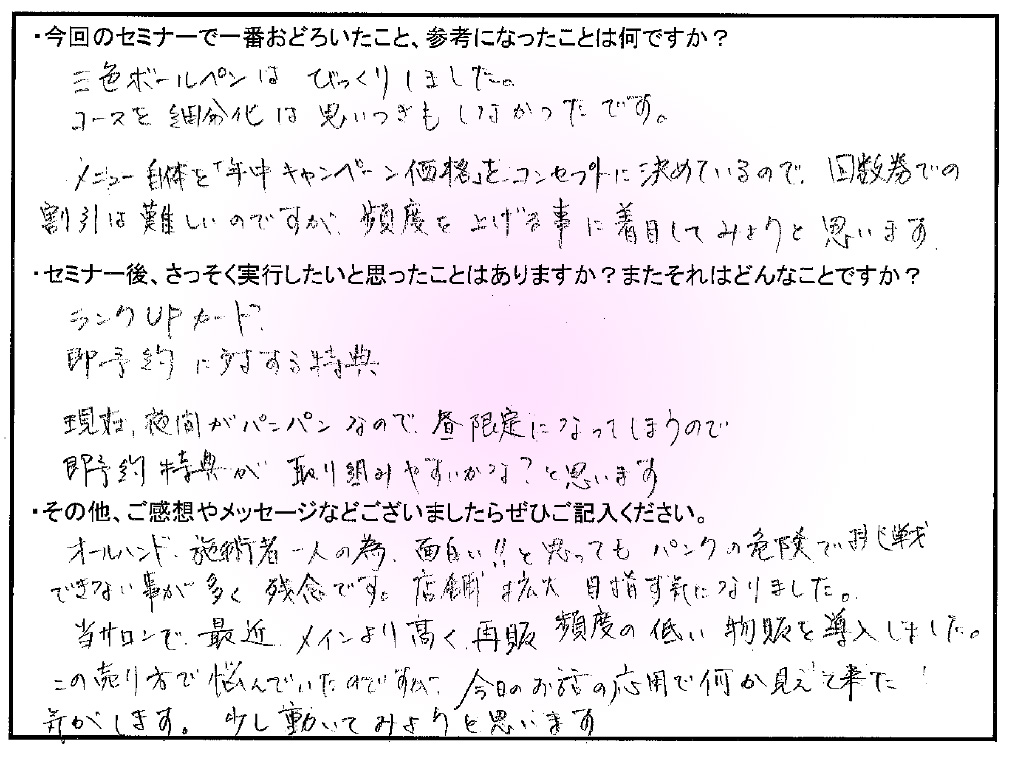 ・今回のセミナーで一番おどろいたこと、参考になったことは何ですか？
三色ボールペンは びっくりしました。
コースを 細分化は思いつきもしなかったです。
メニュー自体を「年中キャンペーン価格」をコンセプトに決めているので、回数券での
割引は難しいのですが、頻度を上げる事に着目してみようと思います。
・セミナー後、さっそく実行したいと思ったことはありますか？またそれはどんなことですか？
ランクUPカード、
即予約に対する特典
現在、夜間がパンパンなので、昼限定になってしまうので
即予約特典が取り組みやすいかな？と思います
・その他、ご感想やメッセージなどございましたらぜひご記入ください。
オールハンド、施術者一人の為、面白い!!と思ってもパンクの危険で挑戦
できない事が多く残念です。店舗拡大目指す気になりました。
当サロンで、最近、メインより高く、再販頻度の低い物販を導入しました。
この売り方で悩んでいたのですが、今日のお話の応用で何か見えて来た
気がします。少し動いてみようと思います